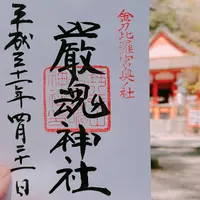 金刀比羅宮奥社
嚴魂神社
平成三十一年四月二十一日